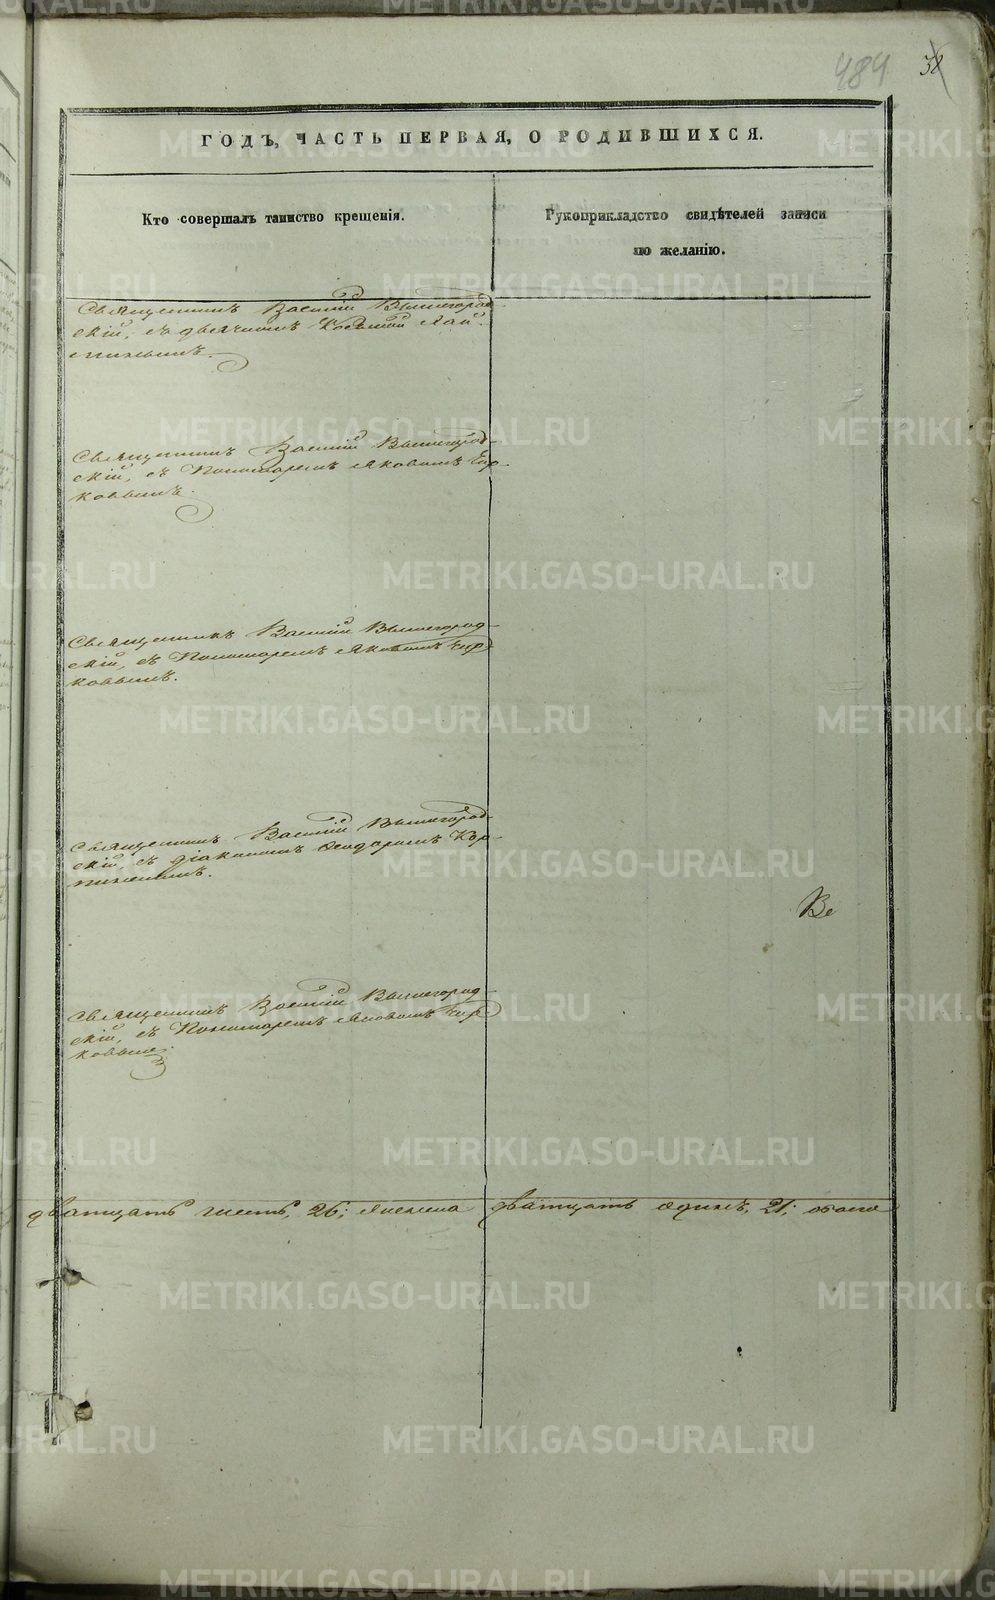 484
38
ГОДЪ, ЧАСТЬ ПЕРВАЯ, О РОДИВШИХСЯ.
Кто совершалъ таинство крещенія.
Рукоприкладство свидѣтелей записи
по желанію.
Священникъ Василій Вышегород-
скій, съ дьячкомъ Козьмой
Священникъ Василій Вышегород-
скій, съ Пономаремъ Яковомъ Чир-
ковымъ.
Священникъ Василій Вышегород-
скій, съ Пономаремъ Яковомъ Чир-
ковымъ.
Священникъ Василій Вышегород-
скій, съ діакономъ Феодоромъ
Ве
Священникъ Василій Вышегород-
скій, съ Пономаремъ Яковомъ Чир-
ковымъ.
дватцать шесть, 26; женска дватцать одинъ, 21; обоего
METRIKI.GASO-URAL.RU